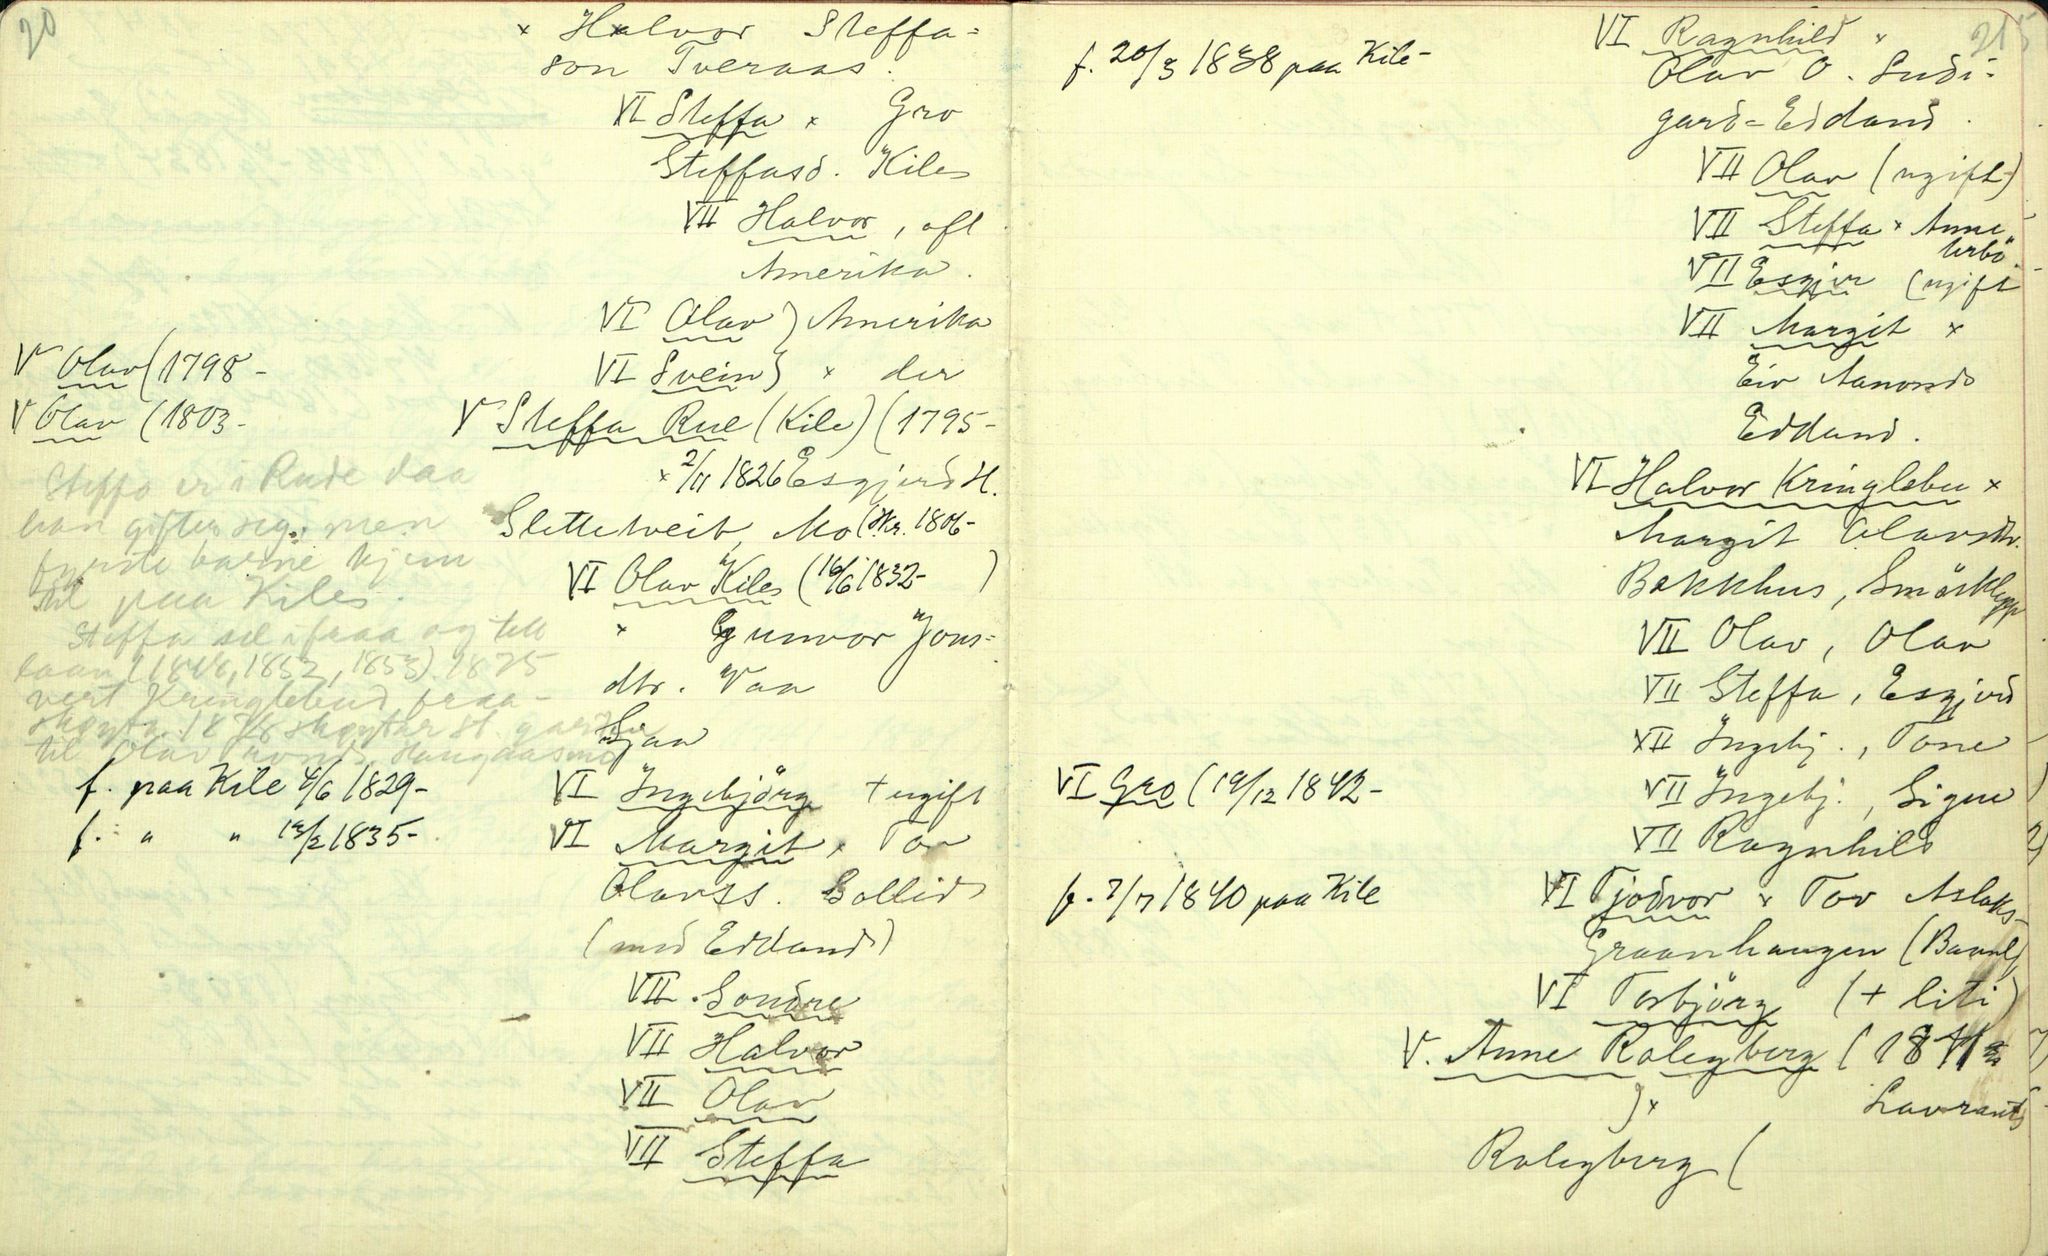 20
× Halvor Steffa=
son Tveraas.
VI Steffa × Gro
Steffasd. Kiles
VII Halvor, afl
Amerika.
VI Olav } Amerika
VI Svein } × der
V Olav (1798-
V Olav (1803-
V Steffa Rue (Kile) (1795-
× 2/11 1826 Esgjerd H.
Slettetveit, Mo (Kr. 1806-
Steffo er i Rude daa
han gifter seg; men
fyrste barne kjem
til paa Kiles.
Steffa sel ifraa og tek
laan (1846, 1852, 1853) 1875
vert Kringlebud fraa-
skøyta. 1878 skøyter St. garden
til Olav
VI Olav Kiles (16/6 1832- )
× Gunvor Jons=
dtr. Vaa
Sjaa
f. paa Kile 4/6 1829-
VI Ingebjörg + ugift
f. " " 13/2 1835-
VI Margit × Tor
Olavss. Bollid
(med Eddand)
VII Sondre
VII Halvor
VII Olav
VII Steffa
215
f. 20/3 1838 paa Kile-
VI Ragnhild ×
Olav O. Sudi-
gard=Eddand.
VII Olav (ugift)
VII Steffa × Anne
Urbö.
VII Esgjer (ugift
VII Margit ×
Eiv Aanonds
Eddand.
VI Halvor Kringlebu ×
Margit Olavsdtr.
Bakkhus, Smörklepp
VII Olav, Olav
VII Steffa, Esgjerd
VII Ingebj., Tone
VI Gro (19/12 1842-
VII Ingebj., Signe
VII Ragnhild
f. 7/7 1840 paa Kile
VI Tjodvor × Tov Aslaks-
Graanhaugen (Bandl)
VI Torbjörg (+ liti)
V. Anne Rolegberg (18
} × Lavrants
Rolegberg (